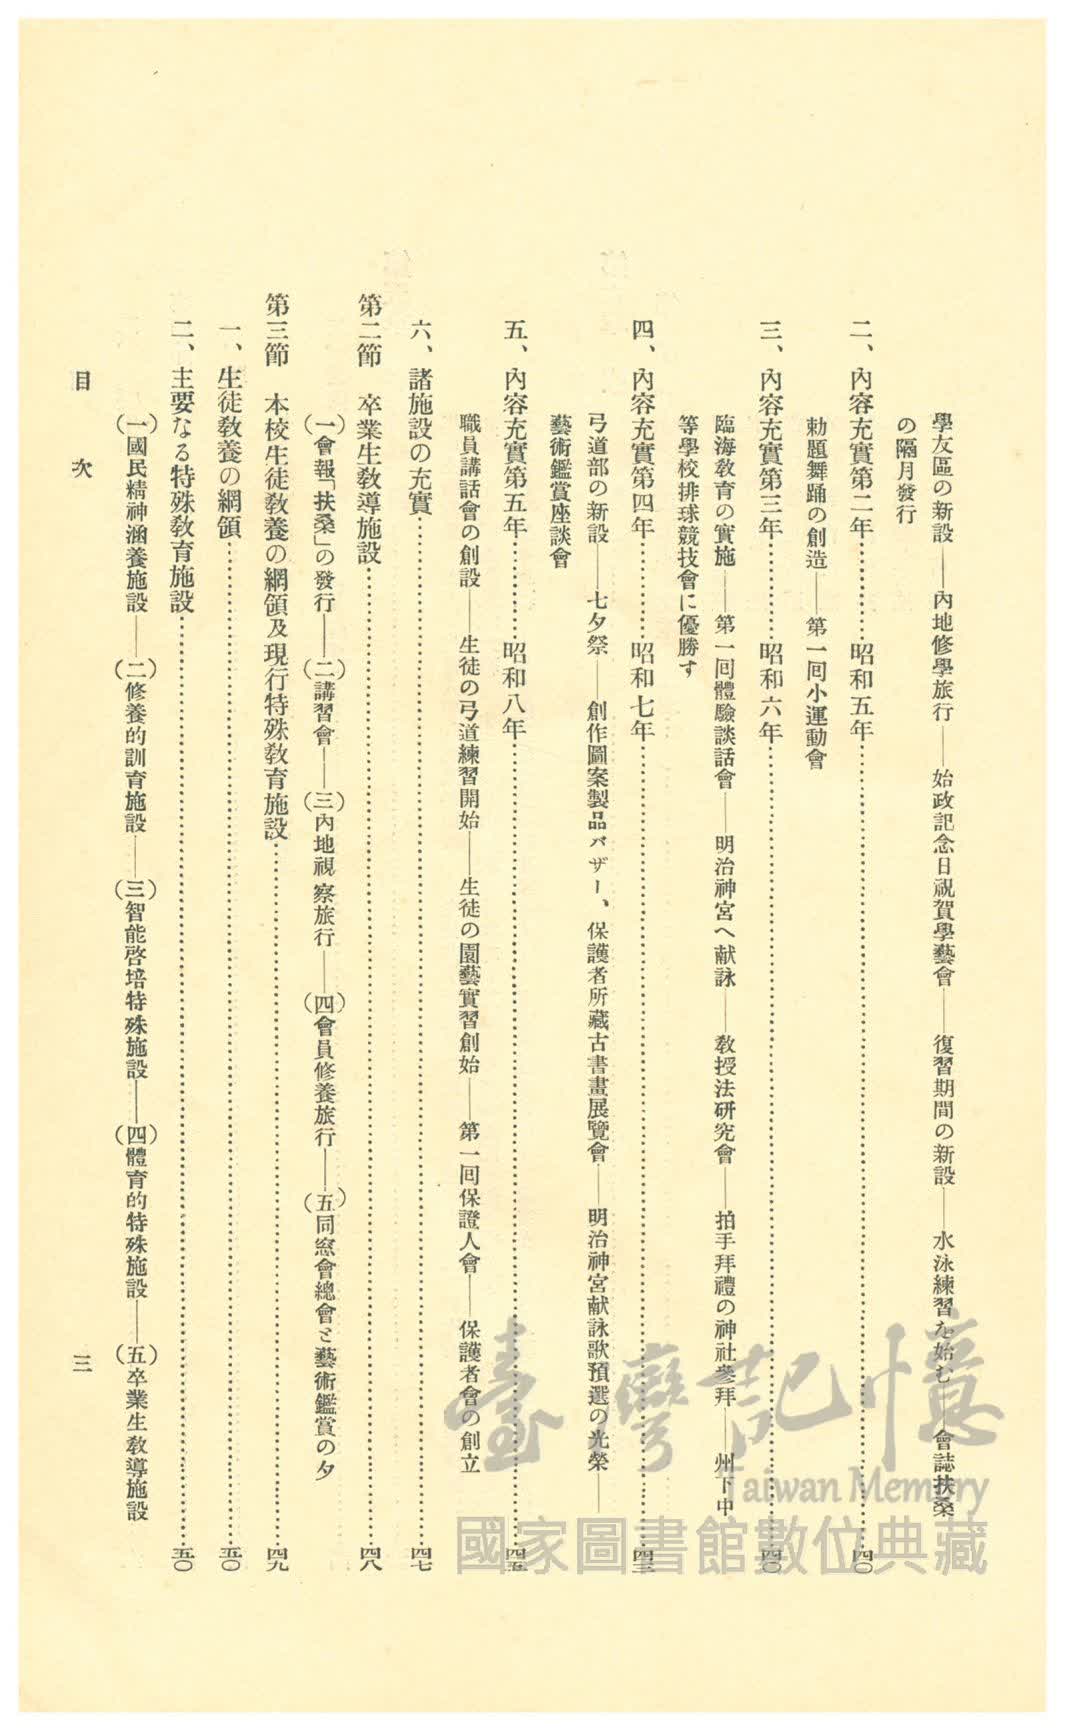 學友區の新設――內地修學旅行――始政記念日祝賀學藝會――復習期間の新設――水泳練習を始む――會誌扶桑
の隔月發行
二、內容充實第二年………昭和五年………四〇
勅題舞踊の創造――第一回小運動會
三、內容充實第三年………昭和六年………四〇
臨海敎育の實施――第一回體驗談話會――明治神宮へ献詠――敎授法硏究會――拍手拜禮の神社參拜――州下中
等學校排球競技會に優勝す
四、內容充實第四年………昭和七年………四三
弓道部の新設――七夕祭――創作圖案製品バザー、保護者所藏古書畫展覽會――明治神宮献詠歌預選の光榮――
藝術鑑賞座談會
五、內容充實第五年………昭和八年………四五
職員講話會の創設――生徒の弓道練習開始――生徒の園藝實習創始――第一回保證人會――保護者會の創立
六、諸施設の充實………四七
第二節　卒業生敎導施設………四八
(一)會報「扶桑」の發行――(二)講習會――(三)內地視察旅行――(四)會員修養旅行――(五)同窓會總會と藝術鑑賞の夕
第三節　本校生徒敎養の綱領及現行特殊敎育施設………四九
一、生徒敎養の綱領………五〇
二、主要なる特殊敎育施設………五〇
(一)國民精神涵養施設――(二)修養的訓育施設――(三)智能啓培特殊施設――(四)體育的特殊施設――(五)卒業生敎導施設
目　次　三
臺灣記憶
Taiwan Memory
國家圖書館數位典藏